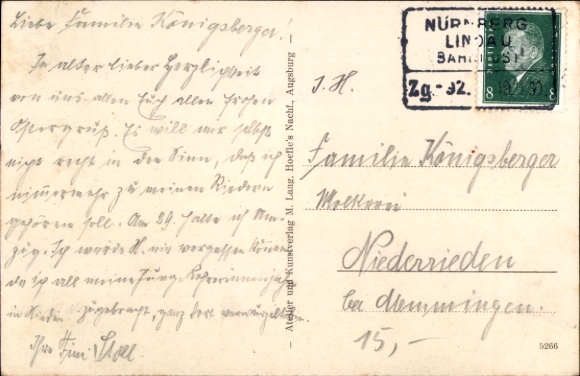 Liebe Familie Königsberger!
In alter lieber Herzlichkeit
von uns allen Euch allen frohen
Ostergruß. Es will mir selbst
nicht recht in den Sinn, daß ich
nimmermehr zu meinen Riedern
gehören soll. Am 29. halte ich Um-
zug. Ich werde N. nie vergessen können
da ich all meine Jung-Lehrerinnenjahre
in Rieden zugebracht, ganz dort verwurzelt bin.
Ihre Fini Stoll.
– Atelier und Kunstverlag M. Lang, Hoefle's Nachf., Augsburg –
NÜRNBERG
LINDAU
BAHNPOST
Zg.-92.
8 8
I. H.
Familie Königsberger
Molkerei
Niederrieden
bei Memmingen.
15,-
5266